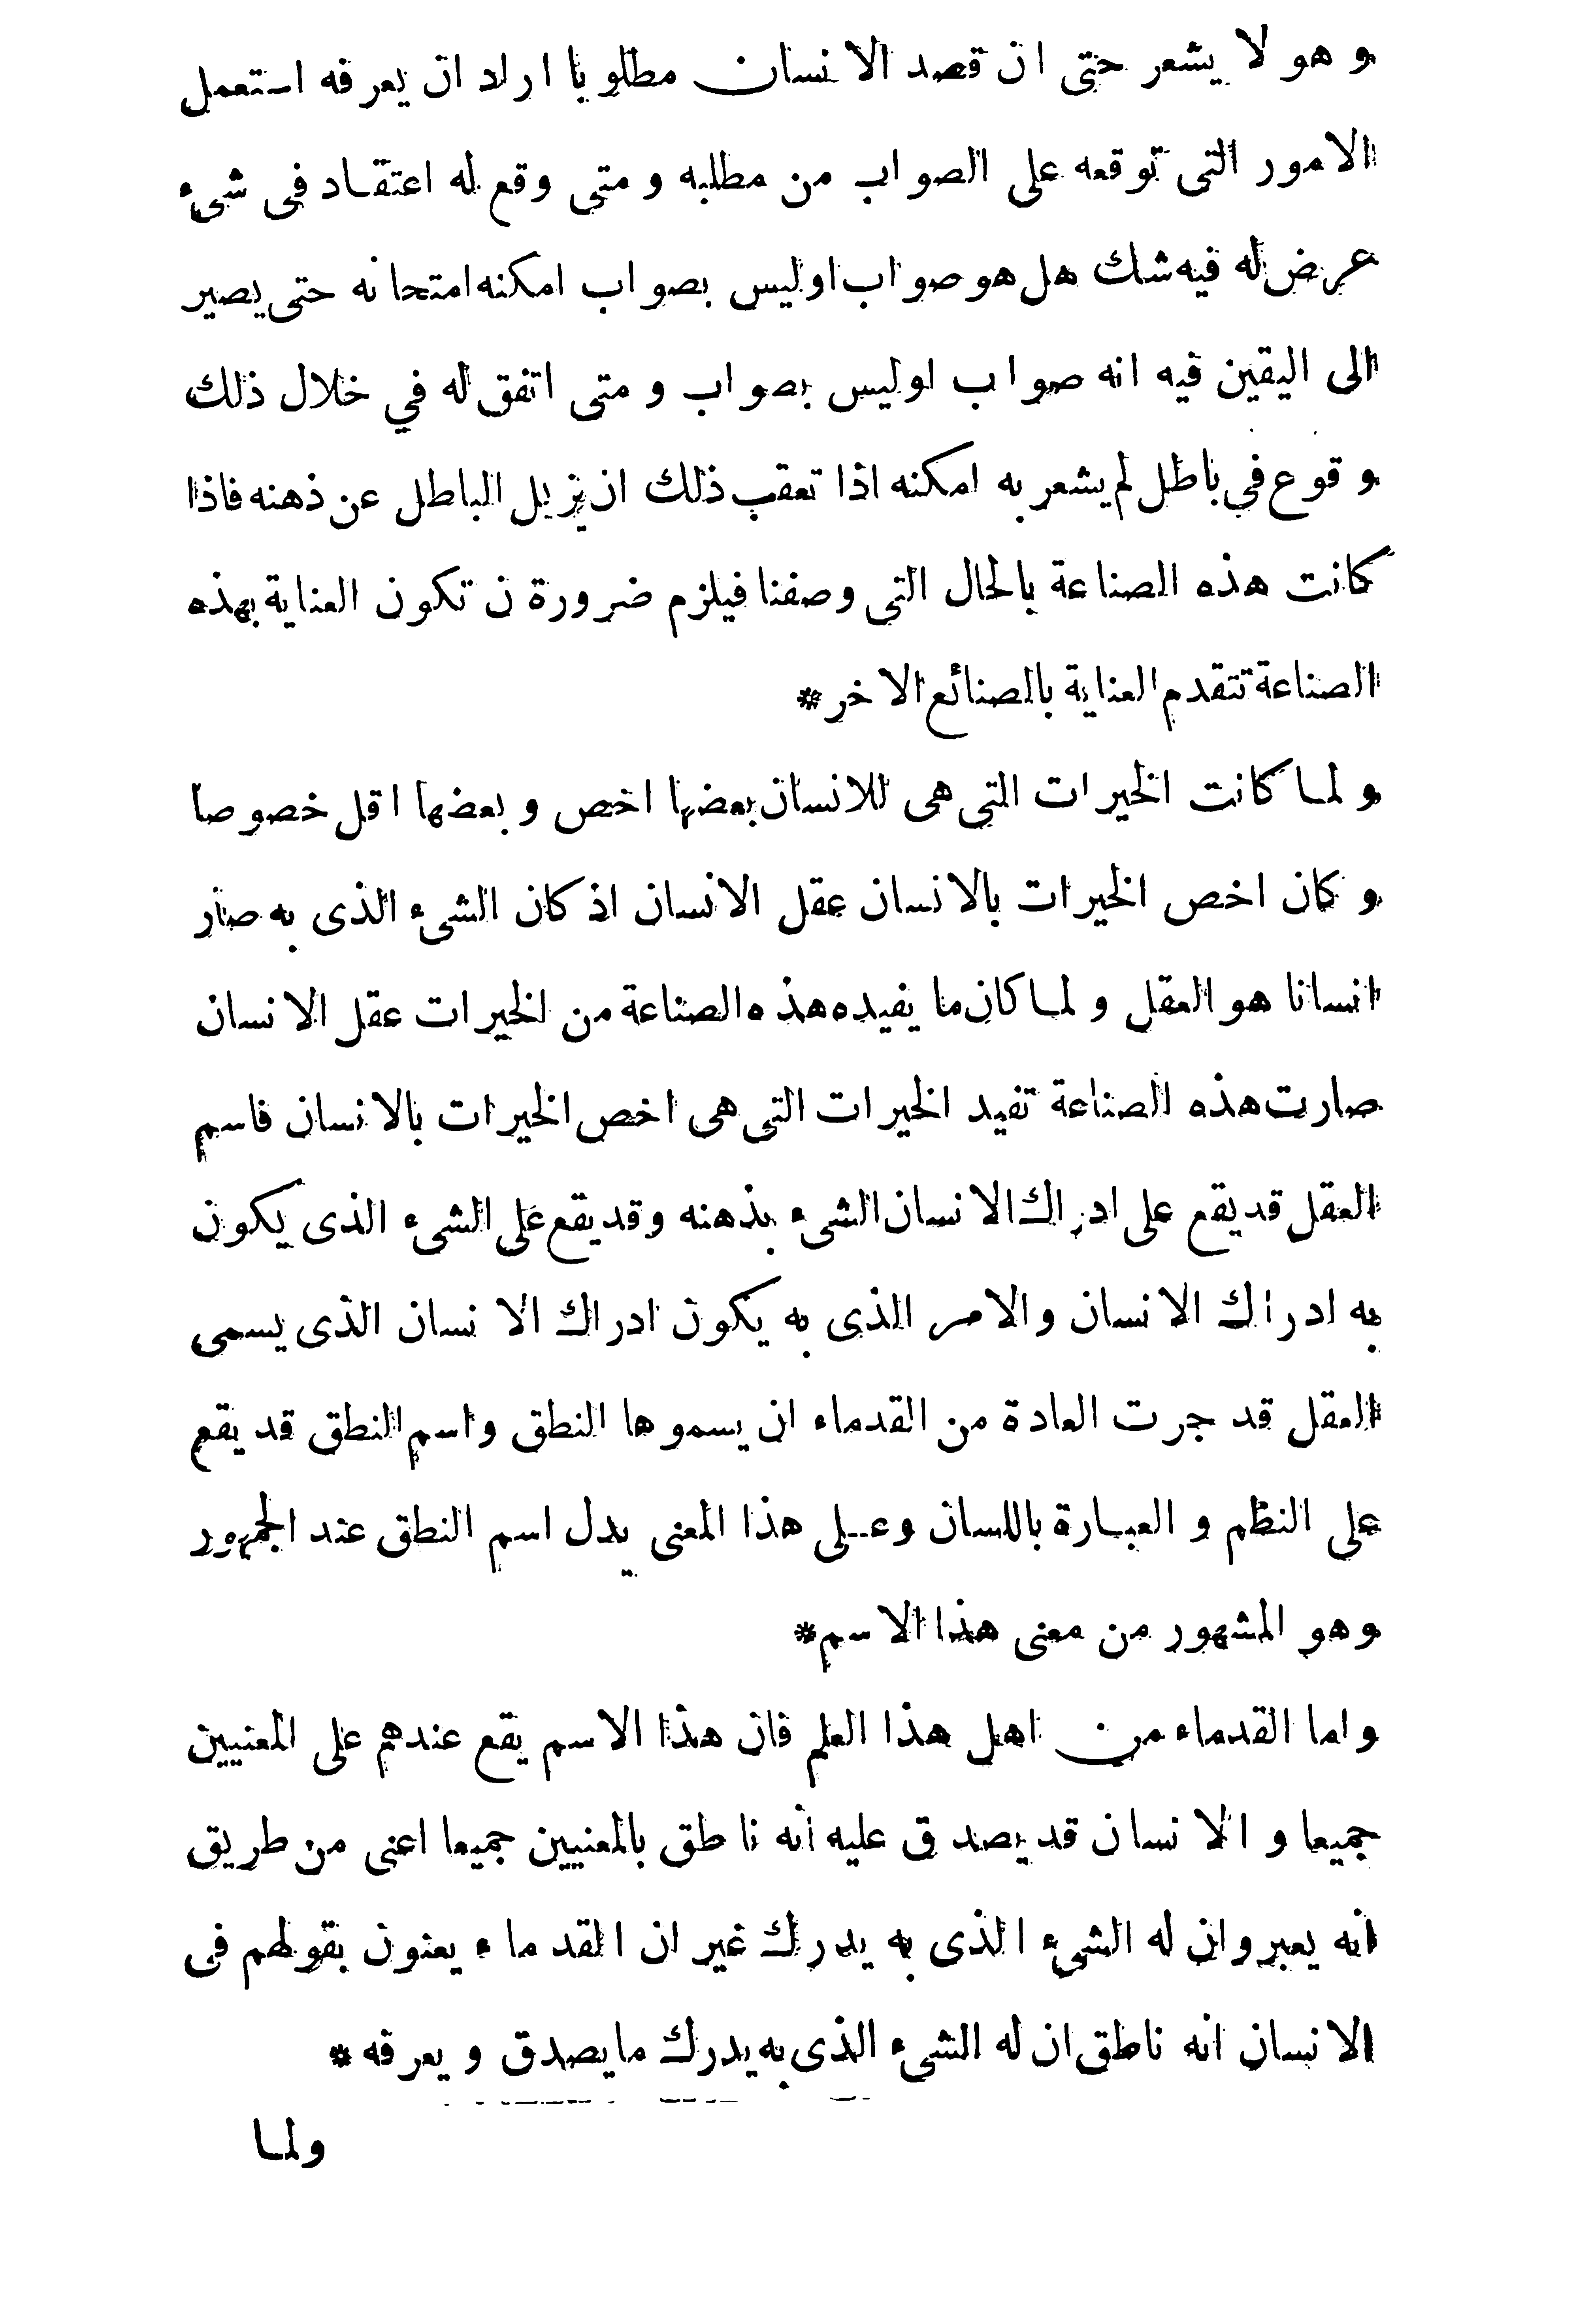 و هو لا يشعر حتى ان قصد الانسان مطلوبا اراد ان يعرفه استعمل
الامور التى توقعه على الصواب من مطلبه و متى وقع له اعتقاد فى شىء
عرض له فيه شك هل هو صواب اوليس بصواب امكنه امتحانه حتى يصير
الى اليقين فيه انه صواب اوليس بصواب و متى اتفق له في خلال ذلك
و قوع في باطل لم يشعر به امكنه اذا تعقب ذلك ان يزيل الباطل عن ذهنه فاذا
كانت هذه الصناعة بالحال التى وصفنا فيلزم ضرورة ن تكون العناية بهذه
الصناعة تتقدم العناية بالصنائع الاخر*
و لما كانت الخيرات التى هى للانسان بعضها اخص و بعضها اقل خصوصا
و كان اخص الخيرات بالانسان عقل الانسان اذ كان الشىء الذى به صار
انسانا هو العقل و لما كان ما يفيده هذه الصناعة من الخيرات عقل الانسان
صارت هذه الصناعة تفيد الخيرات التى هى اخص الخيرات بالانسان فاسم
العقل قد يقع على ادراك الانسان الشىء بذهنه وقد يقع على الشىء الذى يكون
به ادراك الانسان والامر الذى به يكون ادراك الانسان الذى يسمى
العقل قد جرت العادة من القدماء ان يسموها النطق واسم النطق قد يقع
على النظم و العبارة باللسان وعلى هذا المعنى يدل اسم النطق عند الجمهور
وهو المشهور من معنى هذا الاسم*
و اما القدماء من اهل هذا العلم فان هذا الاسم يقع عندهم على المعنيين
جميعا و الانسان قد يصدق عليه أنه ناطق بالمعنيين جميعا اعنى من طريق
انه يعبر وان له الشىء الذى به يدرك غير ان القدماء يعنون بقولهم فى
الانسان انه ناطق ان له الشىء الذى به يدرك ما يصدق و يعرفه*
ولما